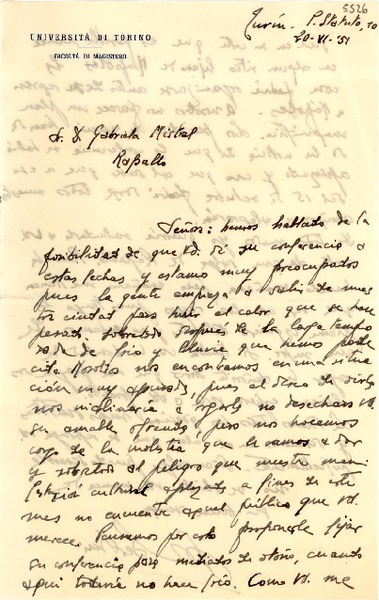 5526
UNIVERSITÀ DI TORINO
FACOLTÀ DI MAGISTERO
Turín - P. Statuto, 10
20-VI-51
S. D. Gabriela Mistral
Rapallo
Señora: hemos hablado de la
posibilidad de que Vd. dé su conferencia a
estas fechas y estamos muy preocupados
pues la gente empieza a salir de nues
tra ciudad para huir al calor que se hace
pesado sobretodo después de la larga tempo
rada de frío y lluvia que hemos pade
cido. Nosotros nos encontramos en una situa
ción muy apurada, pues el deseo de oirla
nos inclinaría a rogarle no desechara Vd.
su amable ofrecido pero nos hacemos
cargo de la molestia que le vamos a dar
y sobretodo el peligro que nuestra mani
festación cultural aplazada a fines de este
mes no encuentre aquel público que Vd.
merece. Pensamos por esto proponerle fijar
su conferencia para mediados de otoño, cuando
aquí todavía no hace frío. Como Vd. me